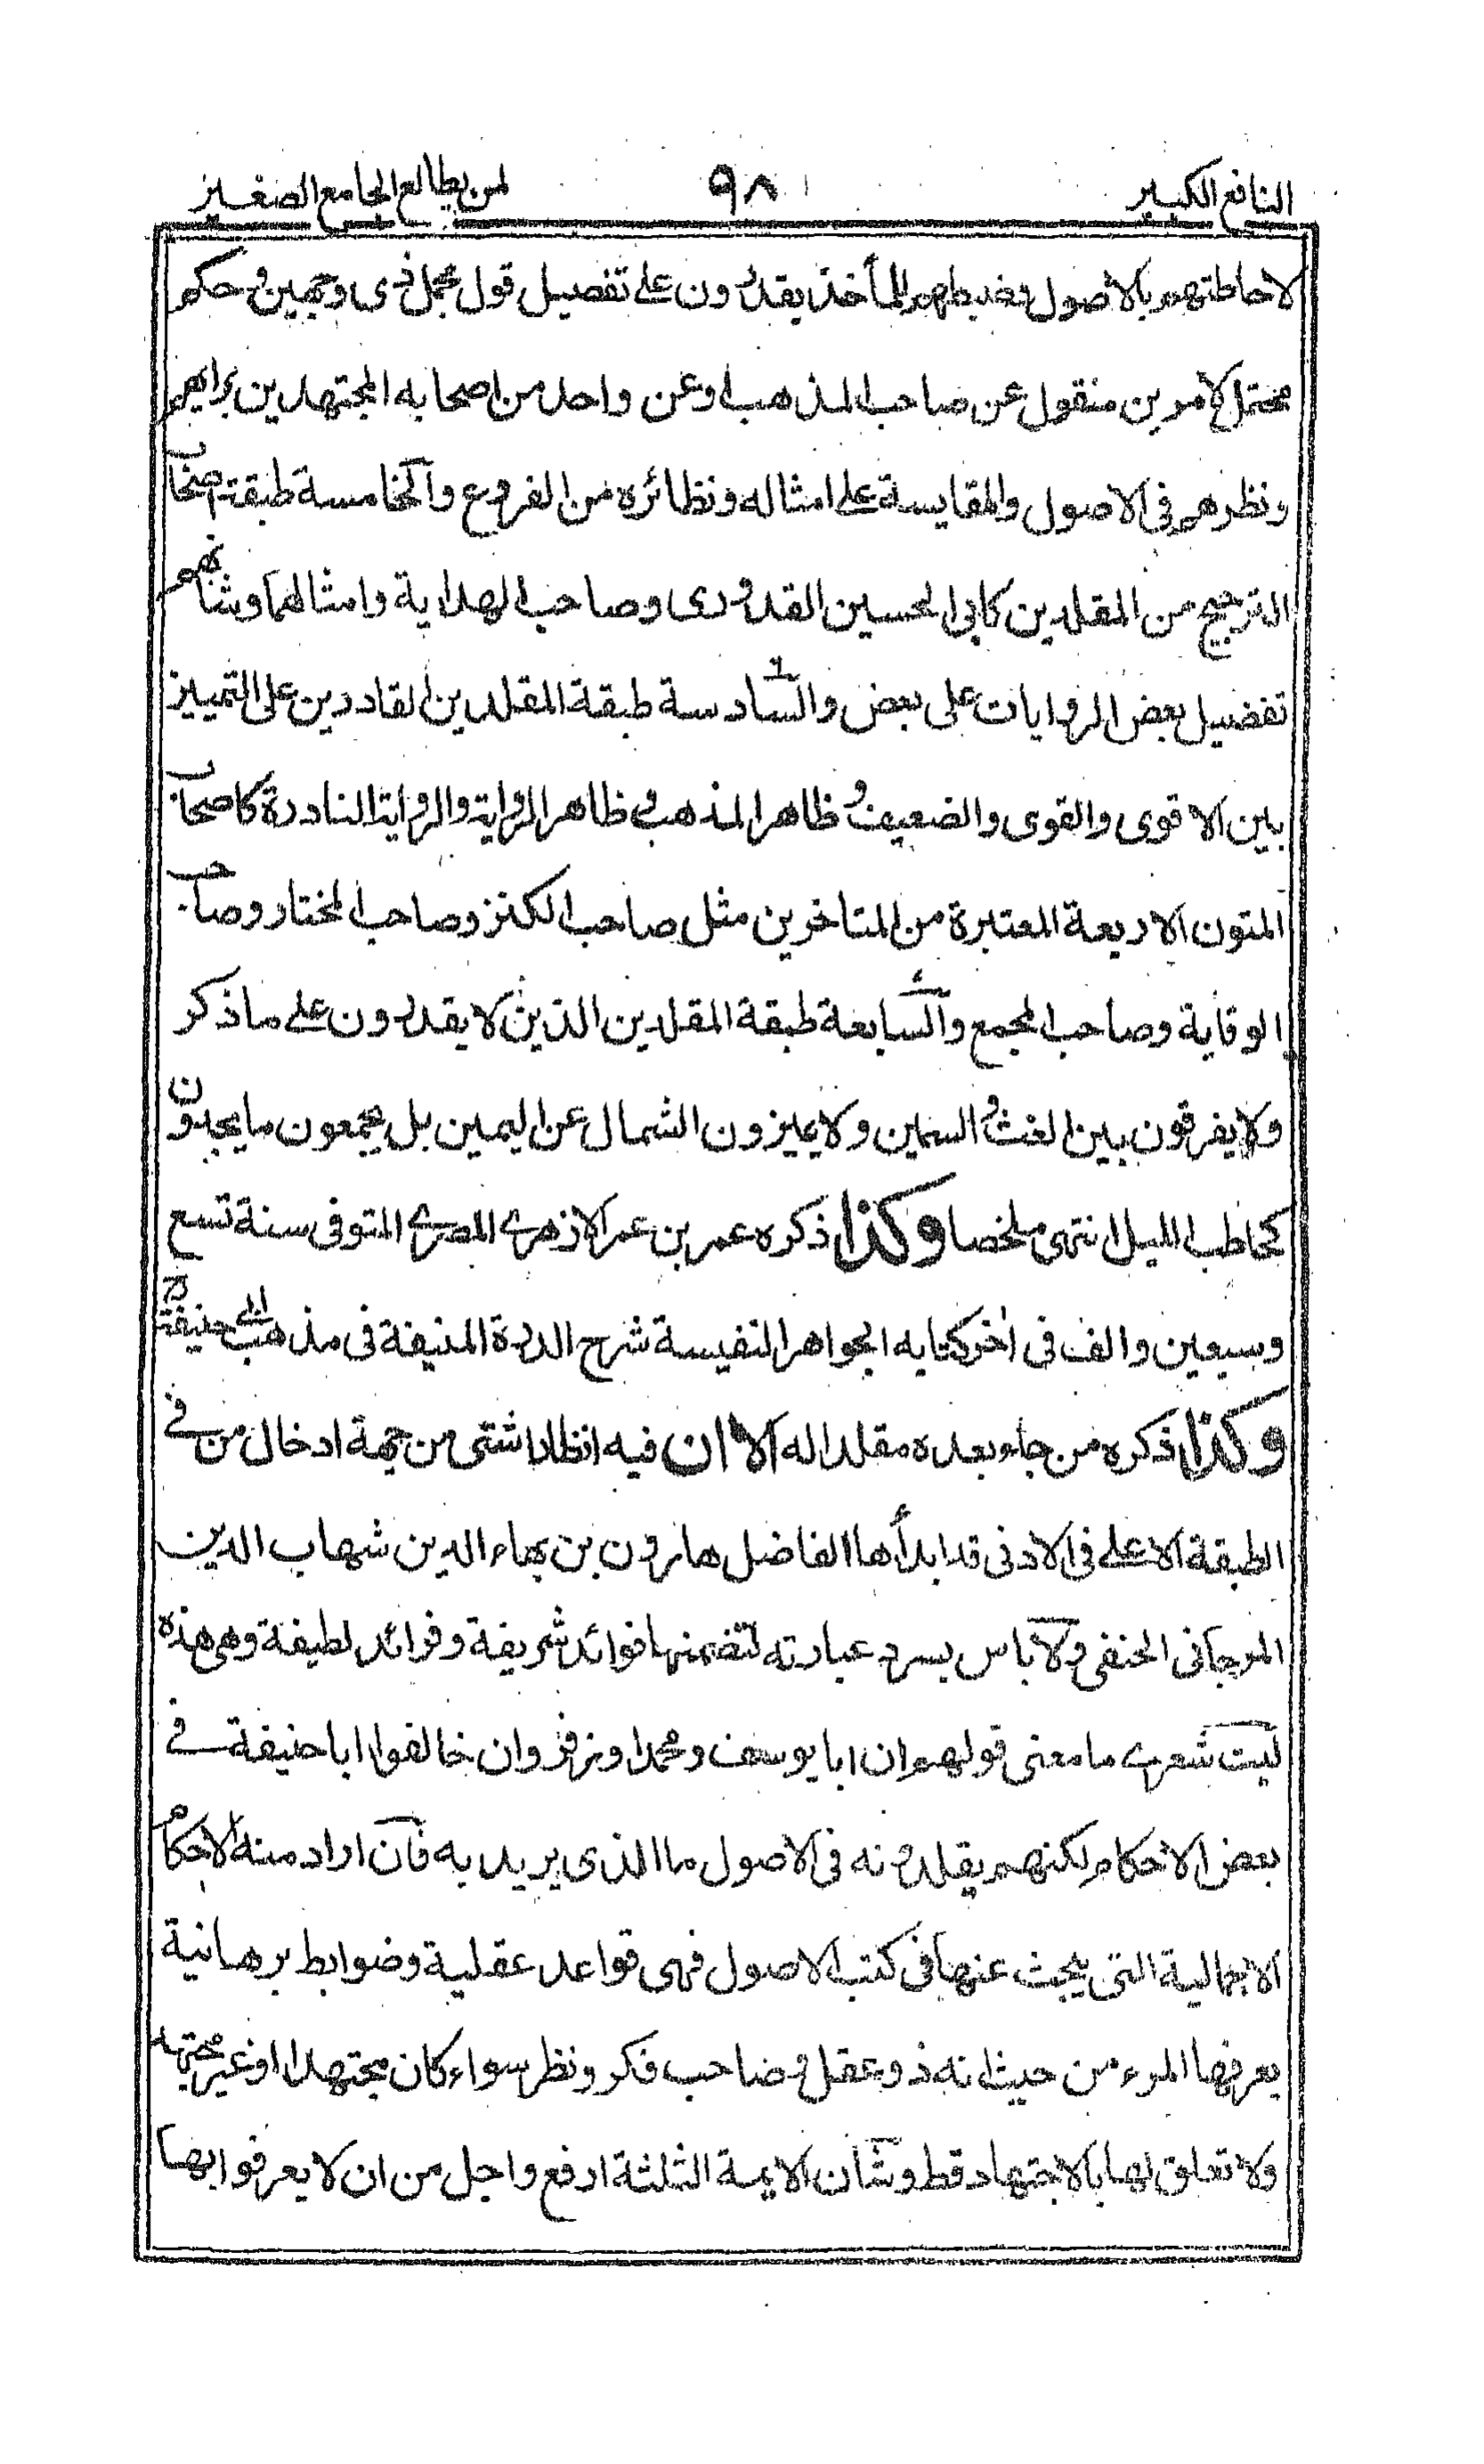 النافع الكبير ٩٨ لمن يطالع الجامع الصغير
لاحاطتهم بالاصول وضبطهم للمأخذ يقدرون على تفصيل قول مجمل ذى وجهين وحكم
محتمل لأمرين منقول عن صاحب المذهب او عن واحد من اصحابه المجتهدين برايهم
ونظرهم فى الاصول والمقايسة على امثاله ونظائره من الفروع والخامسة طبقة اصحاب
الترجيح من المقلدين كابى الحسين القدورى وصاحب الهداية وامثالهما وشانهم
تفضيل بعض الروايات على بعض والسادسة طبقة المقلدين القادرين على التمييز
بين الاقوى والقوى والضعيف وظاهر المذهب وظاهر الرواية والرواية النادرة كاصحاب
المتون الاربعة المعتبرة من المتاخرين مثل صاحب الكنز وصاحب المختار وصاحب
الوقاية وصاحب المجمع والسابعة طبقة المقلدين الذين لا يقدرون على ما ذكر
ولا يفرقون بين الغث والسمين ولا يميزون الشمال عن اليمين بل يجمعون ما يجدون
كحاطب الليل انتهى ملخصا وكذا ذكره عمر بن عمر الازهرى المصرى المتوفى سنة تسع
وسبعين والف فى اخر كتابه الجواهر النفيسة شرح الدرة المنيفة فى مذهب ابى حنيفة رح
وكذا ذكره من جاء بعده مقلدا له الا ان فيه انظارا شتى من جهة ادخال من فى
الطبقة الاعلى فى الادنى قد ابدأها الفاضل هارون بن بهاء الدين شهاب الدين
المرجانى الحنفى ولا باس بسرد عبارته لتضمنها فوائد شريفة وفرائد لطيفة وهى هذه
ليت شعرى ما معنى قولهم ان ابا يوسف ومحمدا وزفر وان خالفوا ابا حنيفة فى
بعض الاحكام لكنهم يقلدونه فى الاصول ما الذى يريد به فان اراد منه الاحكام
الاجمالية التى يبحث عنها فى كتب الاصول فهى قواعد عقلية وضوابط برهانية
يعرفها المرء من حيث انه ذو عقل وصاحب فكر ونظر سواء كان مجتهدا او غير مجتهد
ولا تعلق لها بالاجتهاد قط وشان الايمة الثلثة ارفع واجل من ان لا يعرفوا بها